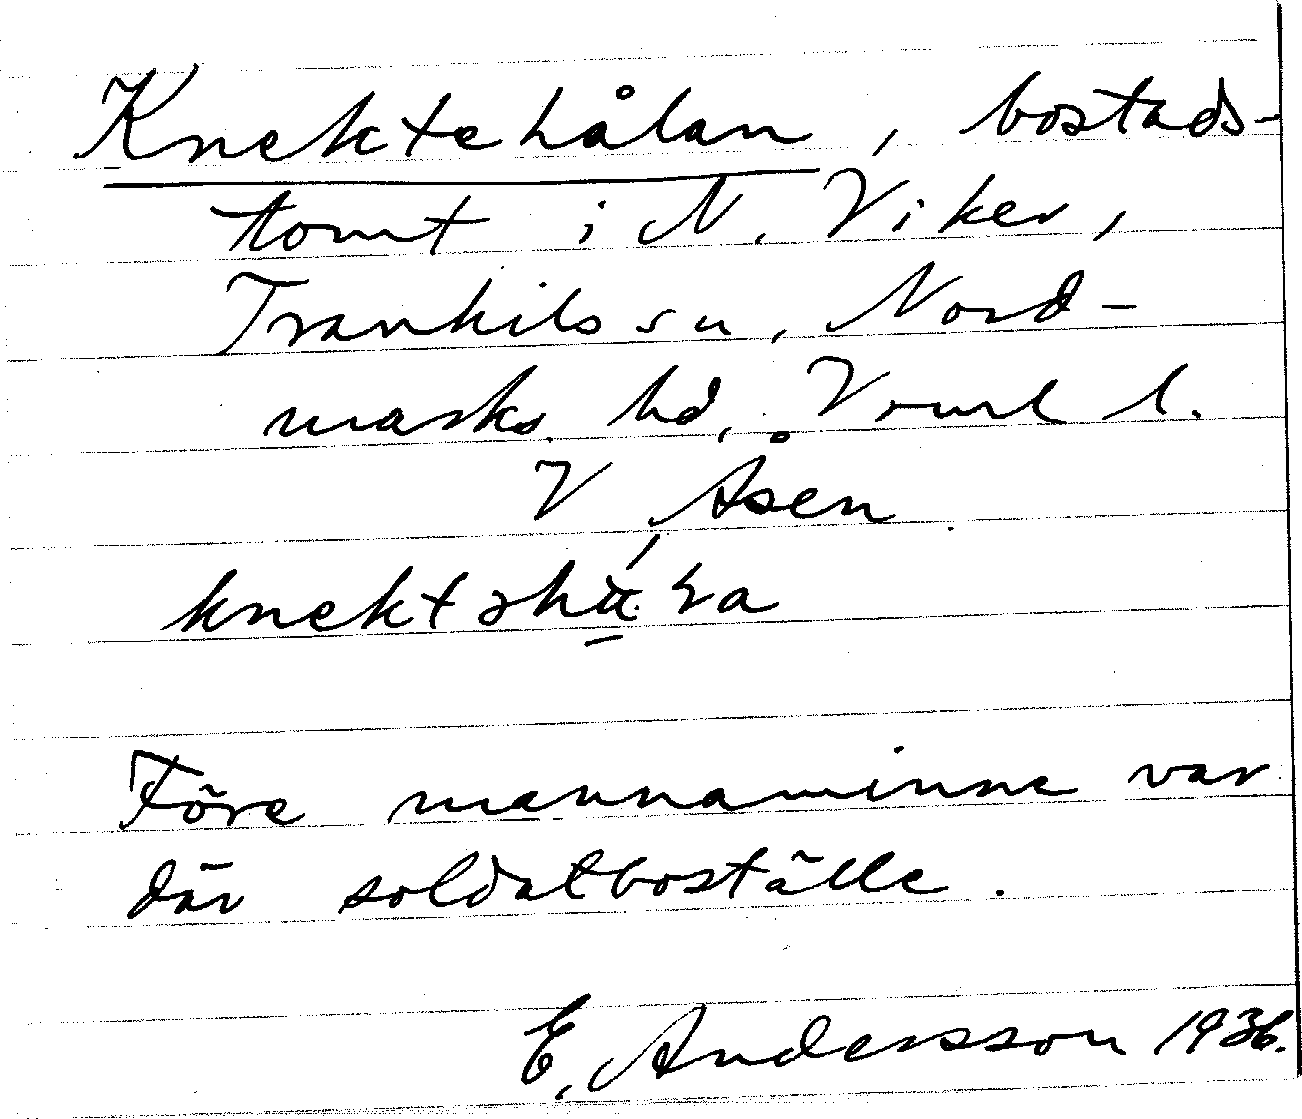 Knektehålan, bostads-
tomt i N. Viker,
Trankils sn, Nord-
marks hd, Vrml l.
V Åsen
Före mannaminne var
där soldatboställe.
E. Andersson 1936.